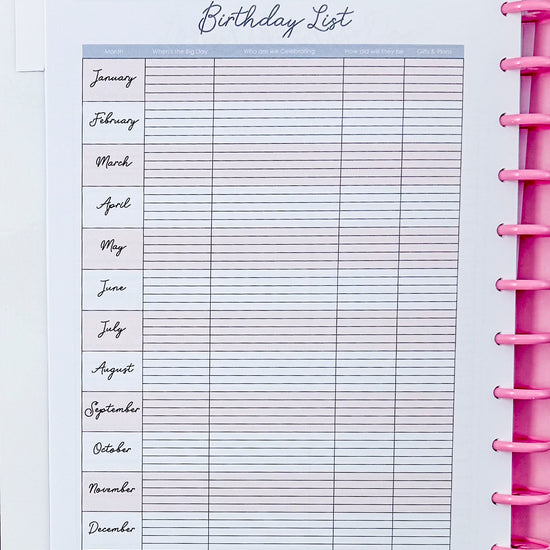 Birthday List
Month When's the Big Day Who are we Celebrating How old will they be Gifts & Plans
January
February
March
April
May
June
July
August
September
October
November
December